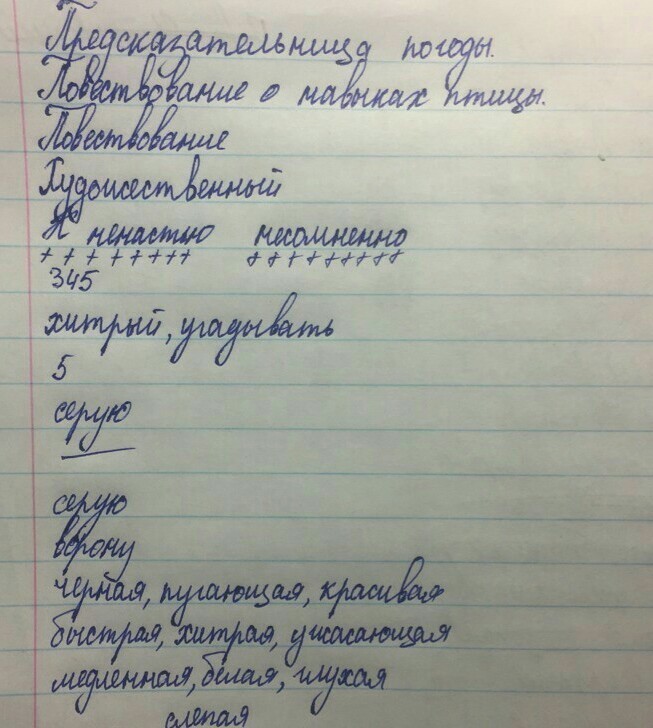 Предсказательница погоды.
Повествование о навыках птицы.
Повествование
Художественный
К ненастью несомненно
+ + + + + + + + + + + + + + + + +
345
хитрый, угадывать
5
серую
серую
ворону
черная, пугающая, красивая
быстрая, хитрая, ужасающая
медленная, белая, глухая
слепая